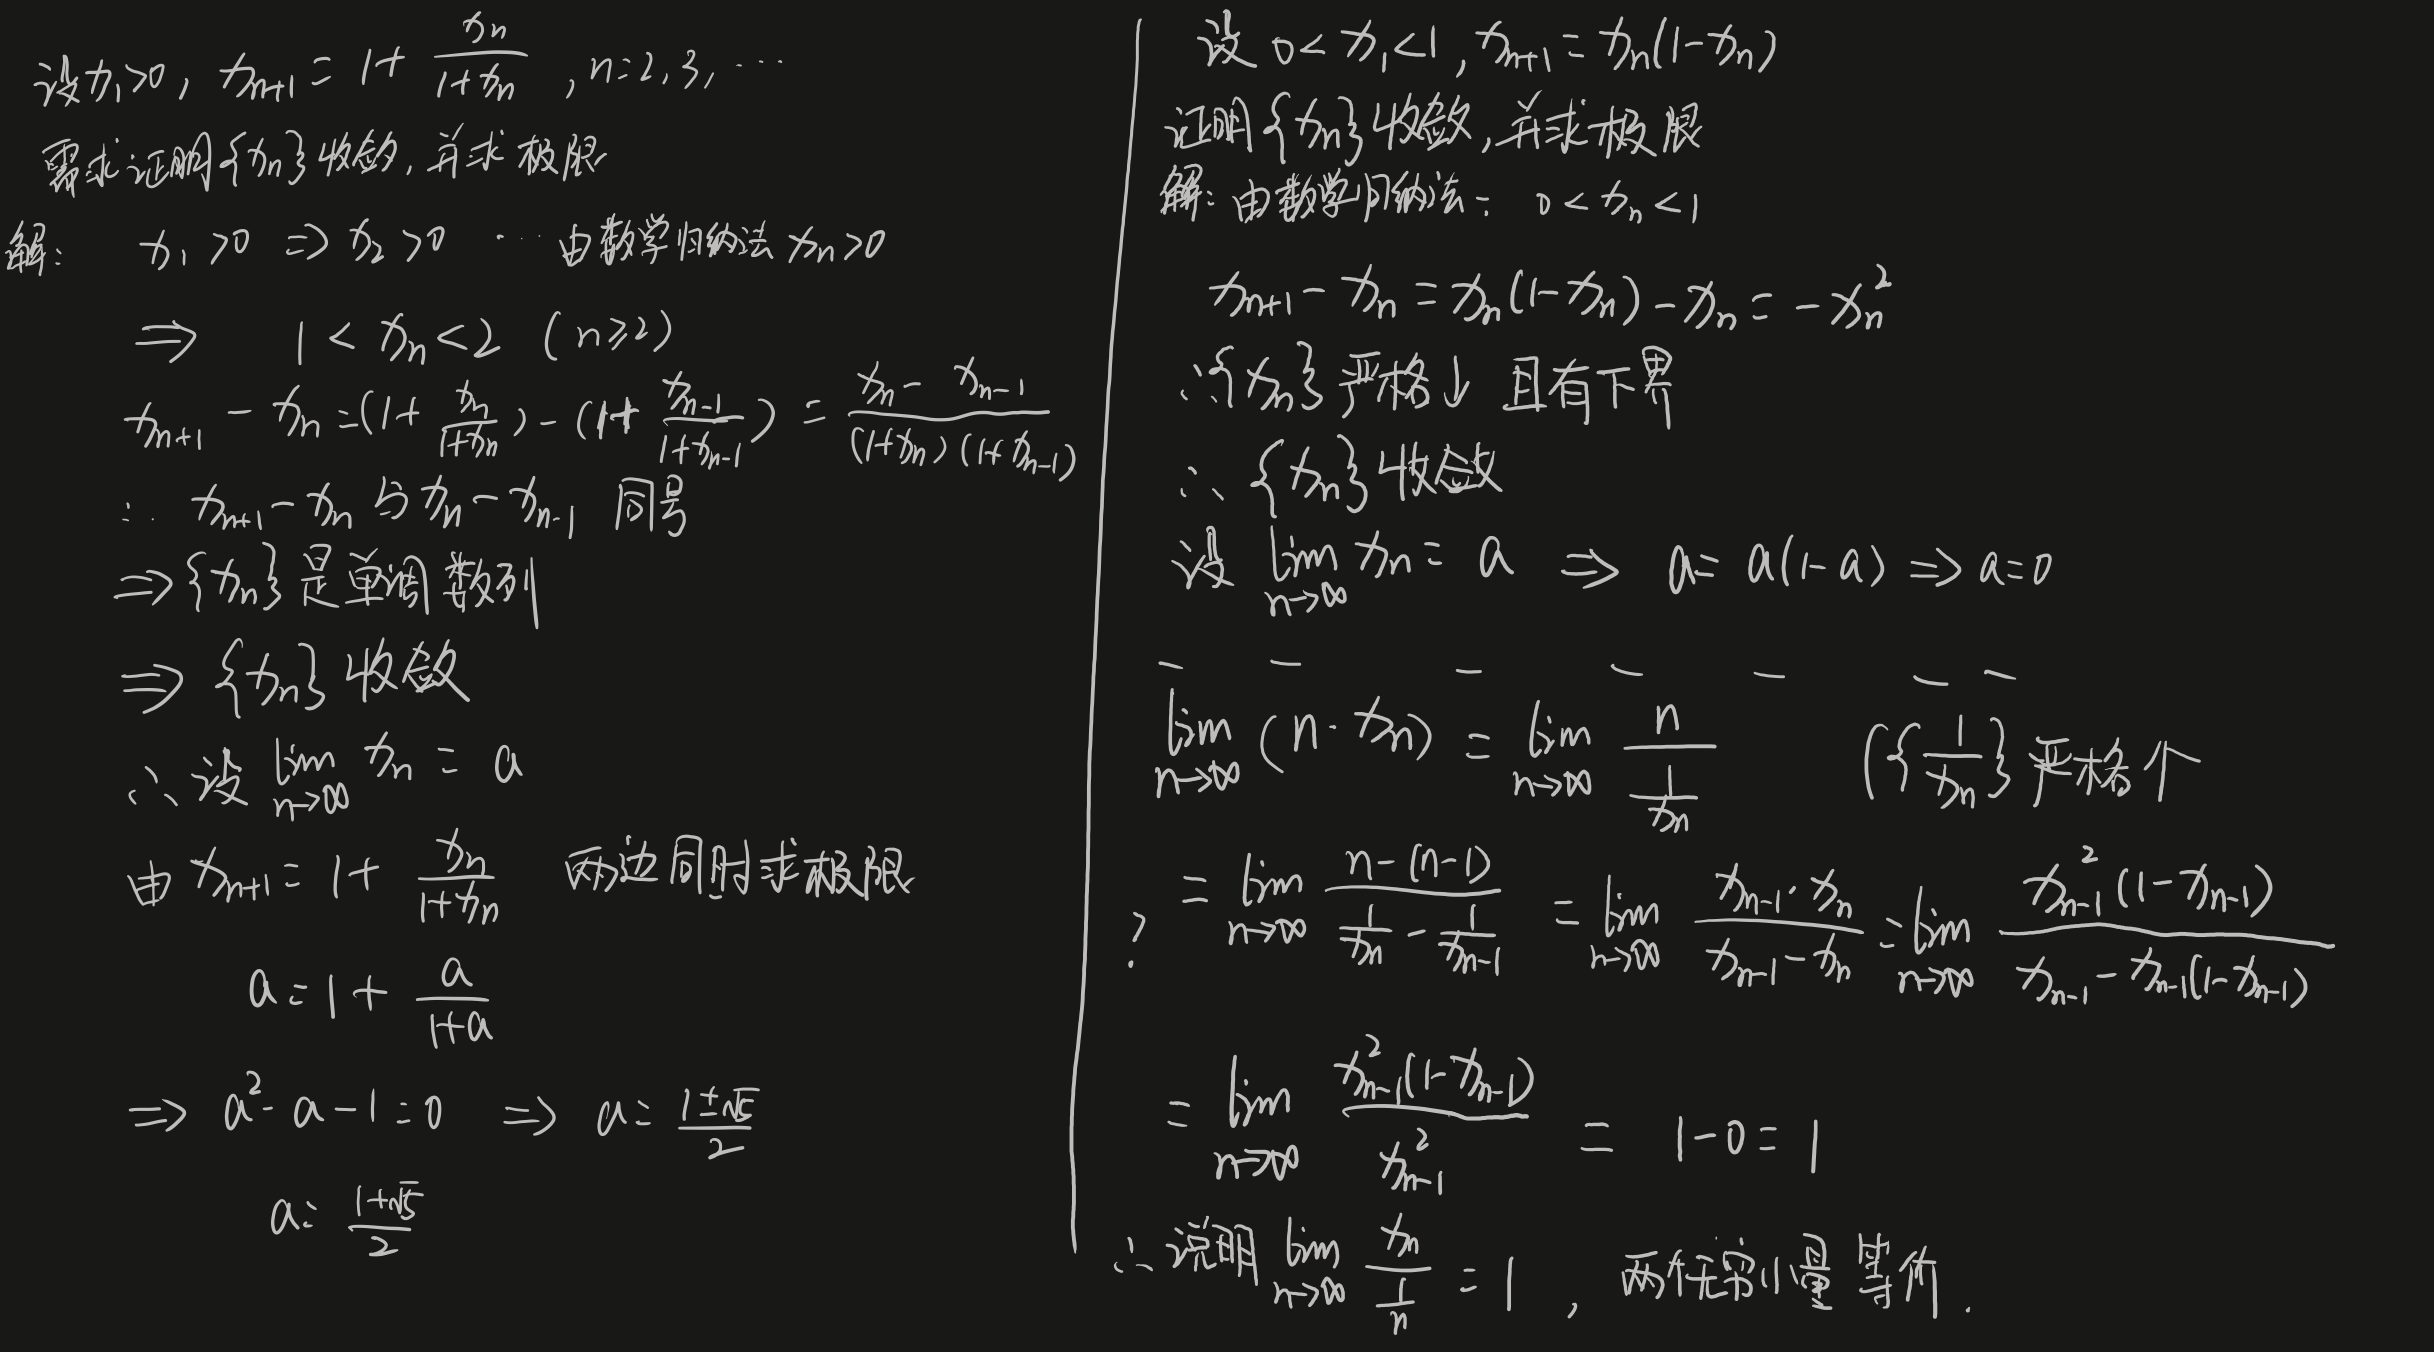 设x₁>0, xₙ₊₁ = 1+ xₙ/(1+xₙ) , n=2,3,…
需求证明{xₙ}收敛,并求极限
解: x₁>0 ⇒ x₂>0 … 由数学归纳法 xₙ>0
⇒ 1 < xₙ < 2 (n≥2)
xₙ₊₁ - xₙ = (1+ xₙ/(1+xₙ)) - (1+ xₙ₋₁/(1+xₙ₋₁)) = (xₙ - xₙ₋₁)/((1+xₙ)(1+xₙ₋₁))
∴ xₙ₊₁ - xₙ 与 xₙ - xₙ₋₁ 同号
⇒ {xₙ} 是单调数列
⇒ {xₙ} 收敛
∴ 设 lim n→∞ xₙ = a
由 xₙ₊₁ = 1+ xₙ/(1+xₙ) 两边同时求极限
a = 1+ a/(1+a)
⇒ a² - a - 1 = 0 ⇒ a = (1±√5)/2
a = (1+√5)/2
设 0 < x₁ < 1, xₙ₊₁ = xₙ(1-xₙ)
证明{xₙ}收敛,并求极限
解: 由数学归纳法: 0 < xₙ < 1
xₙ₊₁ - xₙ = xₙ(1-xₙ) - xₙ = -xₙ²
∴{xₙ} 严格↓ 且有下界
∴ {xₙ} 收敛
设 lim n→∞ xₙ = a ⇒ a = a(1-a) ⇒ a=0
lim n→∞ (n·xₙ) = lim n→∞ n/(1/xₙ) ({1/xₙ} 严格↑
? = lim n→∞ (n-(n-1))/(1/xₙ - 1/xₙ₋₁) = lim n→∞ (xₙ₋₁·xₙ)/(xₙ₋₁-xₙ) = lim n→∞ (xₙ₋₁²(1-xₙ₋₁))/(xₙ₋₁-xₙ₋₁(1-xₙ₋₁))
= lim n→∞ (xₙ₋₁²(1-xₙ₋₁))/xₙ₋₁² = 1-0 = 1
∴ 说明 lim n→∞ xₙ/(1/n) = 1 , 两个无穷小量等价.